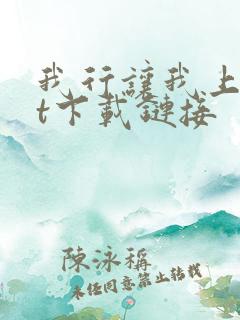 我行讓我上
t下載鏈接
陳泳稱
未经同意禁止转载